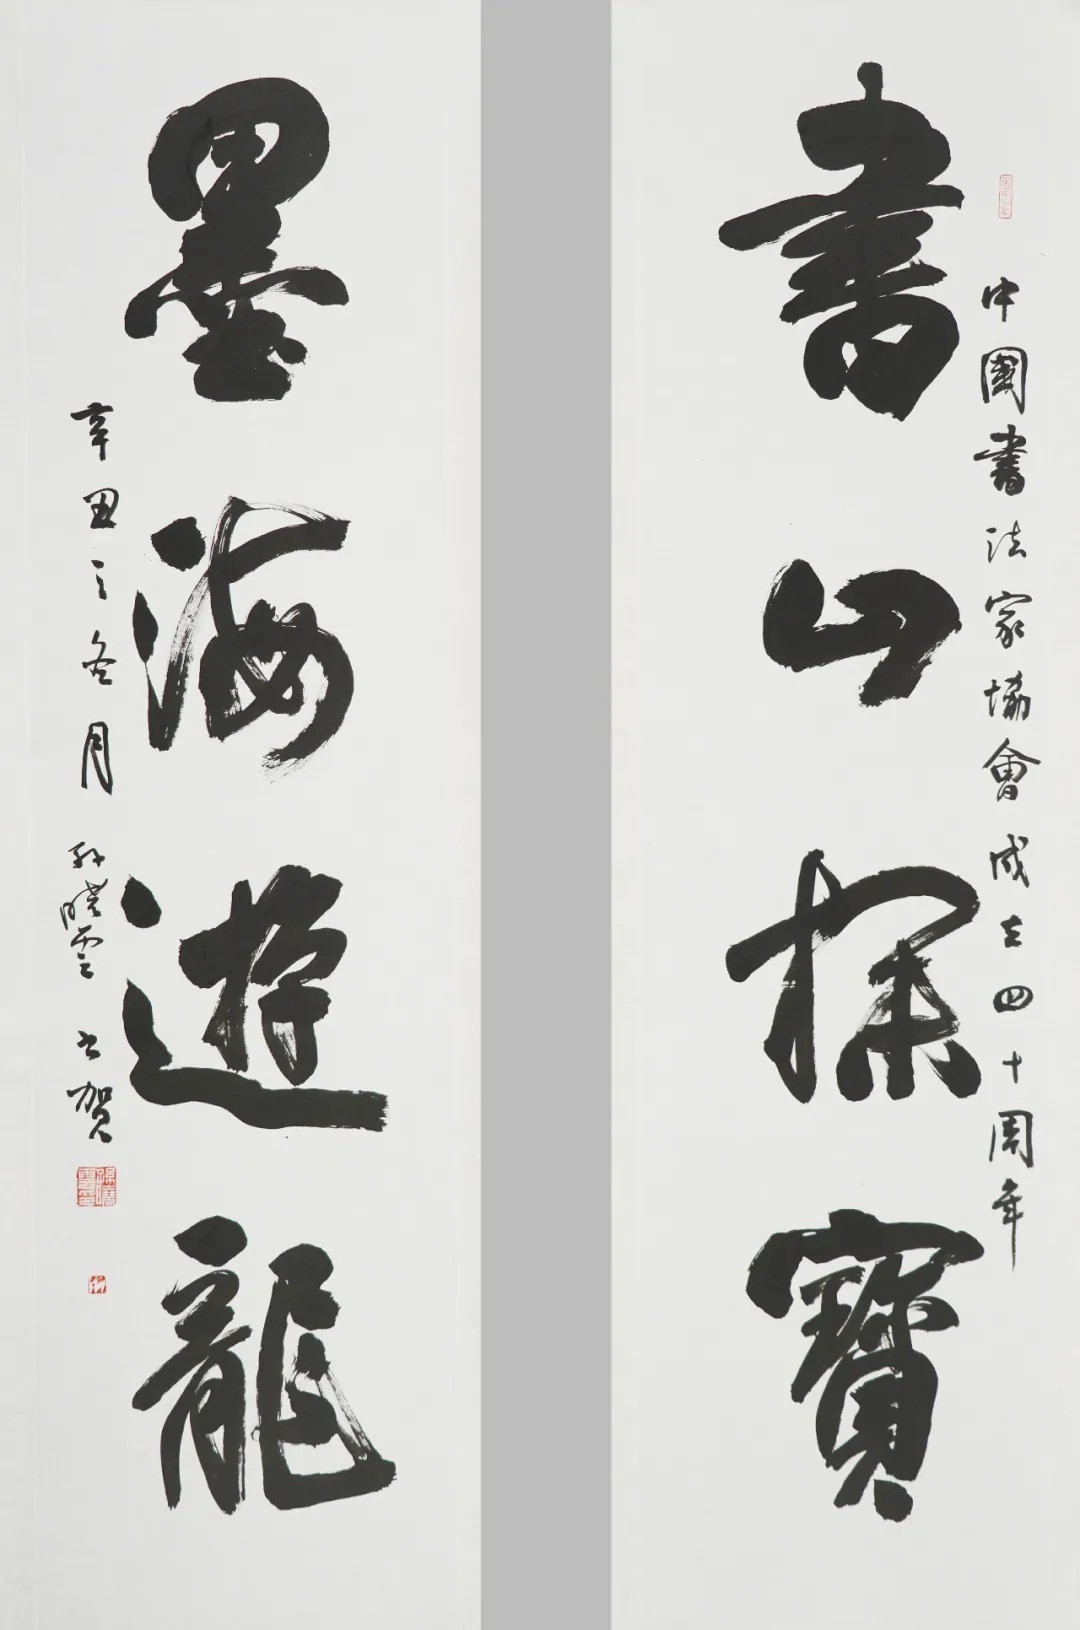 中國書法家協會成立四十周年
書山探寶
墨海遊龍
辛丑之冬月
孫曉雲書賀